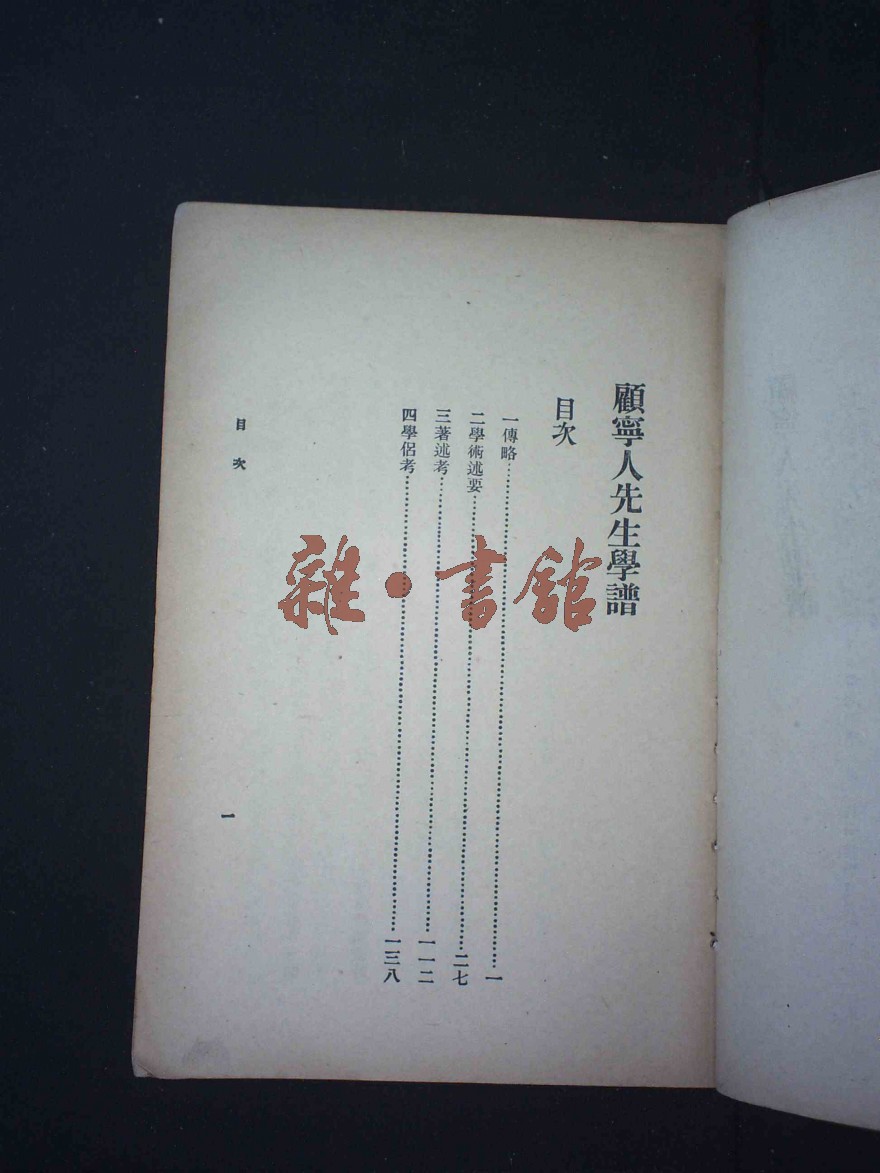 顧寧人先生學譜
目次
一傳略……一
二學術述要……二七
三著述考……一一二
四學侶考……一三八
目次
一
雜·書館